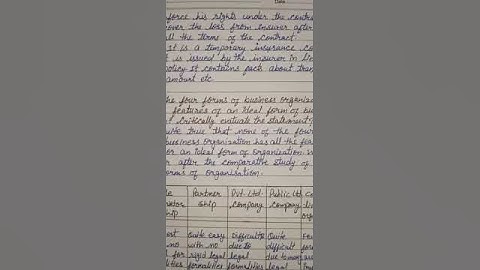 Date
force his rights under the contra
over the loss from insurer after
ll the terms of the contract.
It is a temporary insurance co
t is issued by the insurer in
policy It contains facts about
amount etc
he four forms of business organiza
features of an ideal form of bu
critically evaluate the statement?
uite true that none of the four
business organization has all the fea
or an ideal form of organization.
r after the comparative study of
orms of organisation.
Partner Pvt. Ltd. Public Ltd
ship company company
Quite easy Difficult Quite
no with no due to difficult
for rigid legal legal due to many
lities formalities formalities legal